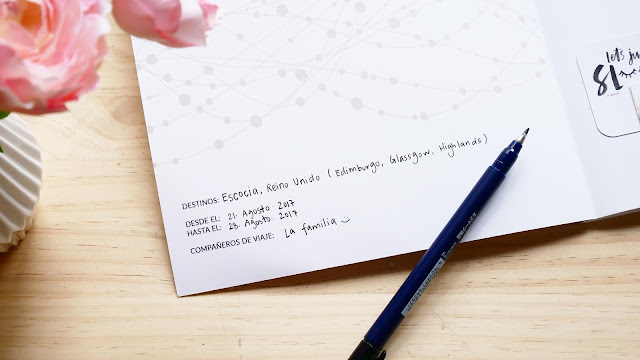 DESTINOS: Escocia, Reino Unido (Edimburgo, Glassgow, Highlands)
DESDE EL: 21. Agosto 2017
HASTA EL: 28. Agosto 2017
COMPAÑEROS DE VIAJE: La familia :)
let's ju